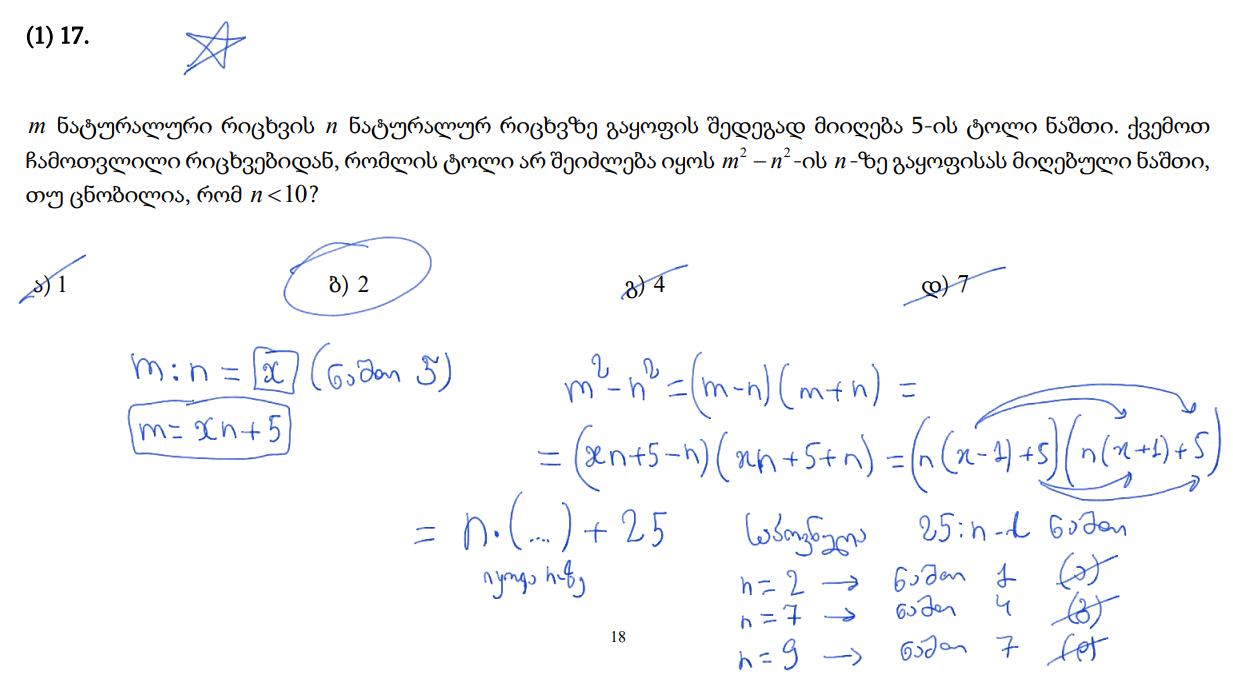 (1) 17.
m ნატურალური რიცხვის n ნატურალურ რიცხვზე გაყოფის შედეგად მიიღება 5-ის ტოლი ნაშთი. ქვემოთ
ჩამოთვლილი რიცხვებიდან, რომლის ტოლი არ შეიძლება იყოს m² – n²-ის n-ზე გაყოფისას მიღებული ნაშთი,
თუ ცნობილია, რომ n < 10?
ა) 1 ბ) 2 გ) 4 დ) 7
m : n = x (ნაშთი 5)
m = xn + 5
m² - n² = (m-n)(m+n) =
= (xn+5-n)(xn+5+n) = (n(x-1)+5)(n(x+1)+5)
= n·(...) + 25
იყოფა n-ზე
საპოვნელია 25:n-ს ნაშთი
n = 2 → ნაშთი 1 (ა)
n = 7 → ნაშთი 4 (გ)
n = 9 → ნაშთი 7 (დ)
18